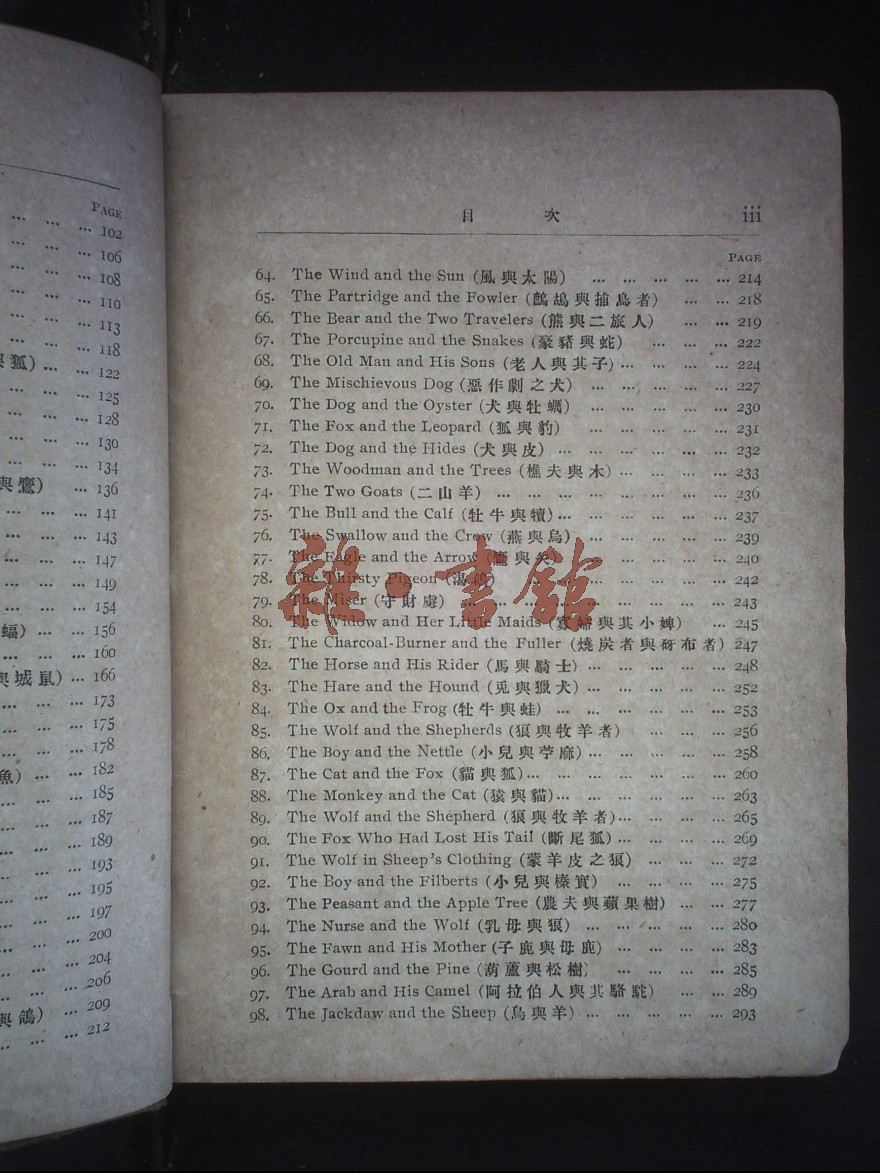 PAGE
... ... ... 102
... ... ... 106
... ... ... 108
... ... ... 110
... ... ... 113
... ... ... 118
與狐) ... ... 122
... ... ... 125
... ... ... 128
... ... ... 130
... ... ... 134
與鷹) ... 136
... ... ... 141
... ... ... 143
... ... ... 147
... ... ... 149
... ... ... 154
蝠) ... ... 156
... ... ... 160
與城鼠) ... 166
... ... ... 173
... ... ... 175
... ... ... 178
魚) ... ... 182
... ... ... 185
... ... ... 187
... ... ... 189
... ... ... 193
... ... ... 195
... ... ... 197
... ... ... 200
... ... ... 204
... ... ... 206
與鴿) ... 209
... ... ... 212
目 次 iii
PAGE
64. The Wind and the Sun (風與太陽) ... ... ... ... ... 214
65. The Partridge and the Fowler (鷓鴣與捕鳥者) ... ... 218
66. The Bear and the Two Travelers (熊與二旅人) ... ... 219
67. The Porcupine and the Snakes (豪豬與蛇) ... ... ... 222
68. The Old Man and His Sons (老人與其子) ... ... ... ... 224
69. The Mischievous Dog (惡作劇之犬) ... ... ... ... 227
70. The Dog and the Oyster (犬與牡蠣) ... ... ... ... 230
71. The Fox and the Leopard (狐與豹) ... ... ... ... 231
72. The Dog and the Hides (犬與皮) ... ... ... ... ... 232
73. The Woodman and the Trees (樵夫與木) ... ... ... ... 233
74. The Two Goats (二山羊) ... ... ... ... ... ... 236
75. The Bull and the Calf (牡牛與犢) ... ... ... ... ... 237
76. The Swallow and the Crow (燕與烏) ... ... ... ... 239
77. The Eagle and the Arrow (鷹與矢) ... ... ... ... 240
78. The Thirsty Pigeon (渴鴿) ... ... ... ... ... 242
79. The Miser (守財虜) ... ... ... ... ... ... ... 243
80. The Widow and Her Little Maids (寡婦與其小婢) ... 245
81. The Charcoal-Burner and the Fuller (燒炭者與砑布者) 247
82. The Horse and His Rider (馬與騎士) ... ... ... ... 248
83. The Hare and the Hound (兎與獵犬) ... ... ... ... ... 252
84. The Ox and the Frog (牡牛與蛙) ... ... ... ... ... 253
85. The Wolf and the Shepherds (狼與牧羊者) ... ... ... 256
86. The Boy and the Nettle (小兒與苧麻) ... ... ... ... ... 258
87. The Cat and the Fox (貓與狐) ... ... ... ... ... ... 260
88. The Monkey and the Cat (猿與貓) ... ... ... ... ... 263
89. The Wolf and the Shepherd (狼與牧羊者) ... ... ... ... 265
90. The Fox Who Had Lost His Tail (斷尾狐) ... ... ... ... 269
91. The Wolf in Sheep's Clothing (蒙羊皮之狼) ... ... ... 272
92. The Boy and the Filberts (小兒與榛實) ... ... ... ... 275
93. The Peasant and the Apple Tree (農夫與蘋果樹) ... ... 277
94. The Nurse and the Wolf (乳母與狼) ... ... ... ... 280
95. The Fawn and His Mother (子鹿與母鹿) ... ... ... ... 283
96. The Gourd and the Pine (葫蘆與松樹) ... ... ... 285
97. The Arab and His Camel (阿拉伯人與其駱駝) ... ... 289
98. The Jackdaw and the Sheep (烏與羊) ... ... ... ... ... 293
雜·書館